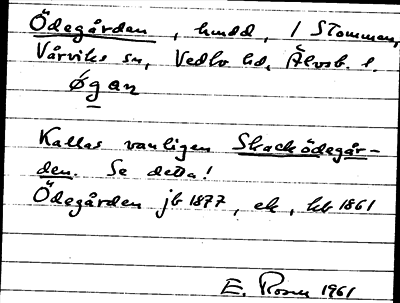 Ödegården, hmdd, 1 Stommen,
Vårviks sn, Vedbo hd, Älvsb. l.
øgan
Kallas vanligen Skacködegår-
den. Se detta!
Ödegården jb 1877, ek, kb 1861
E. Rosen 1961